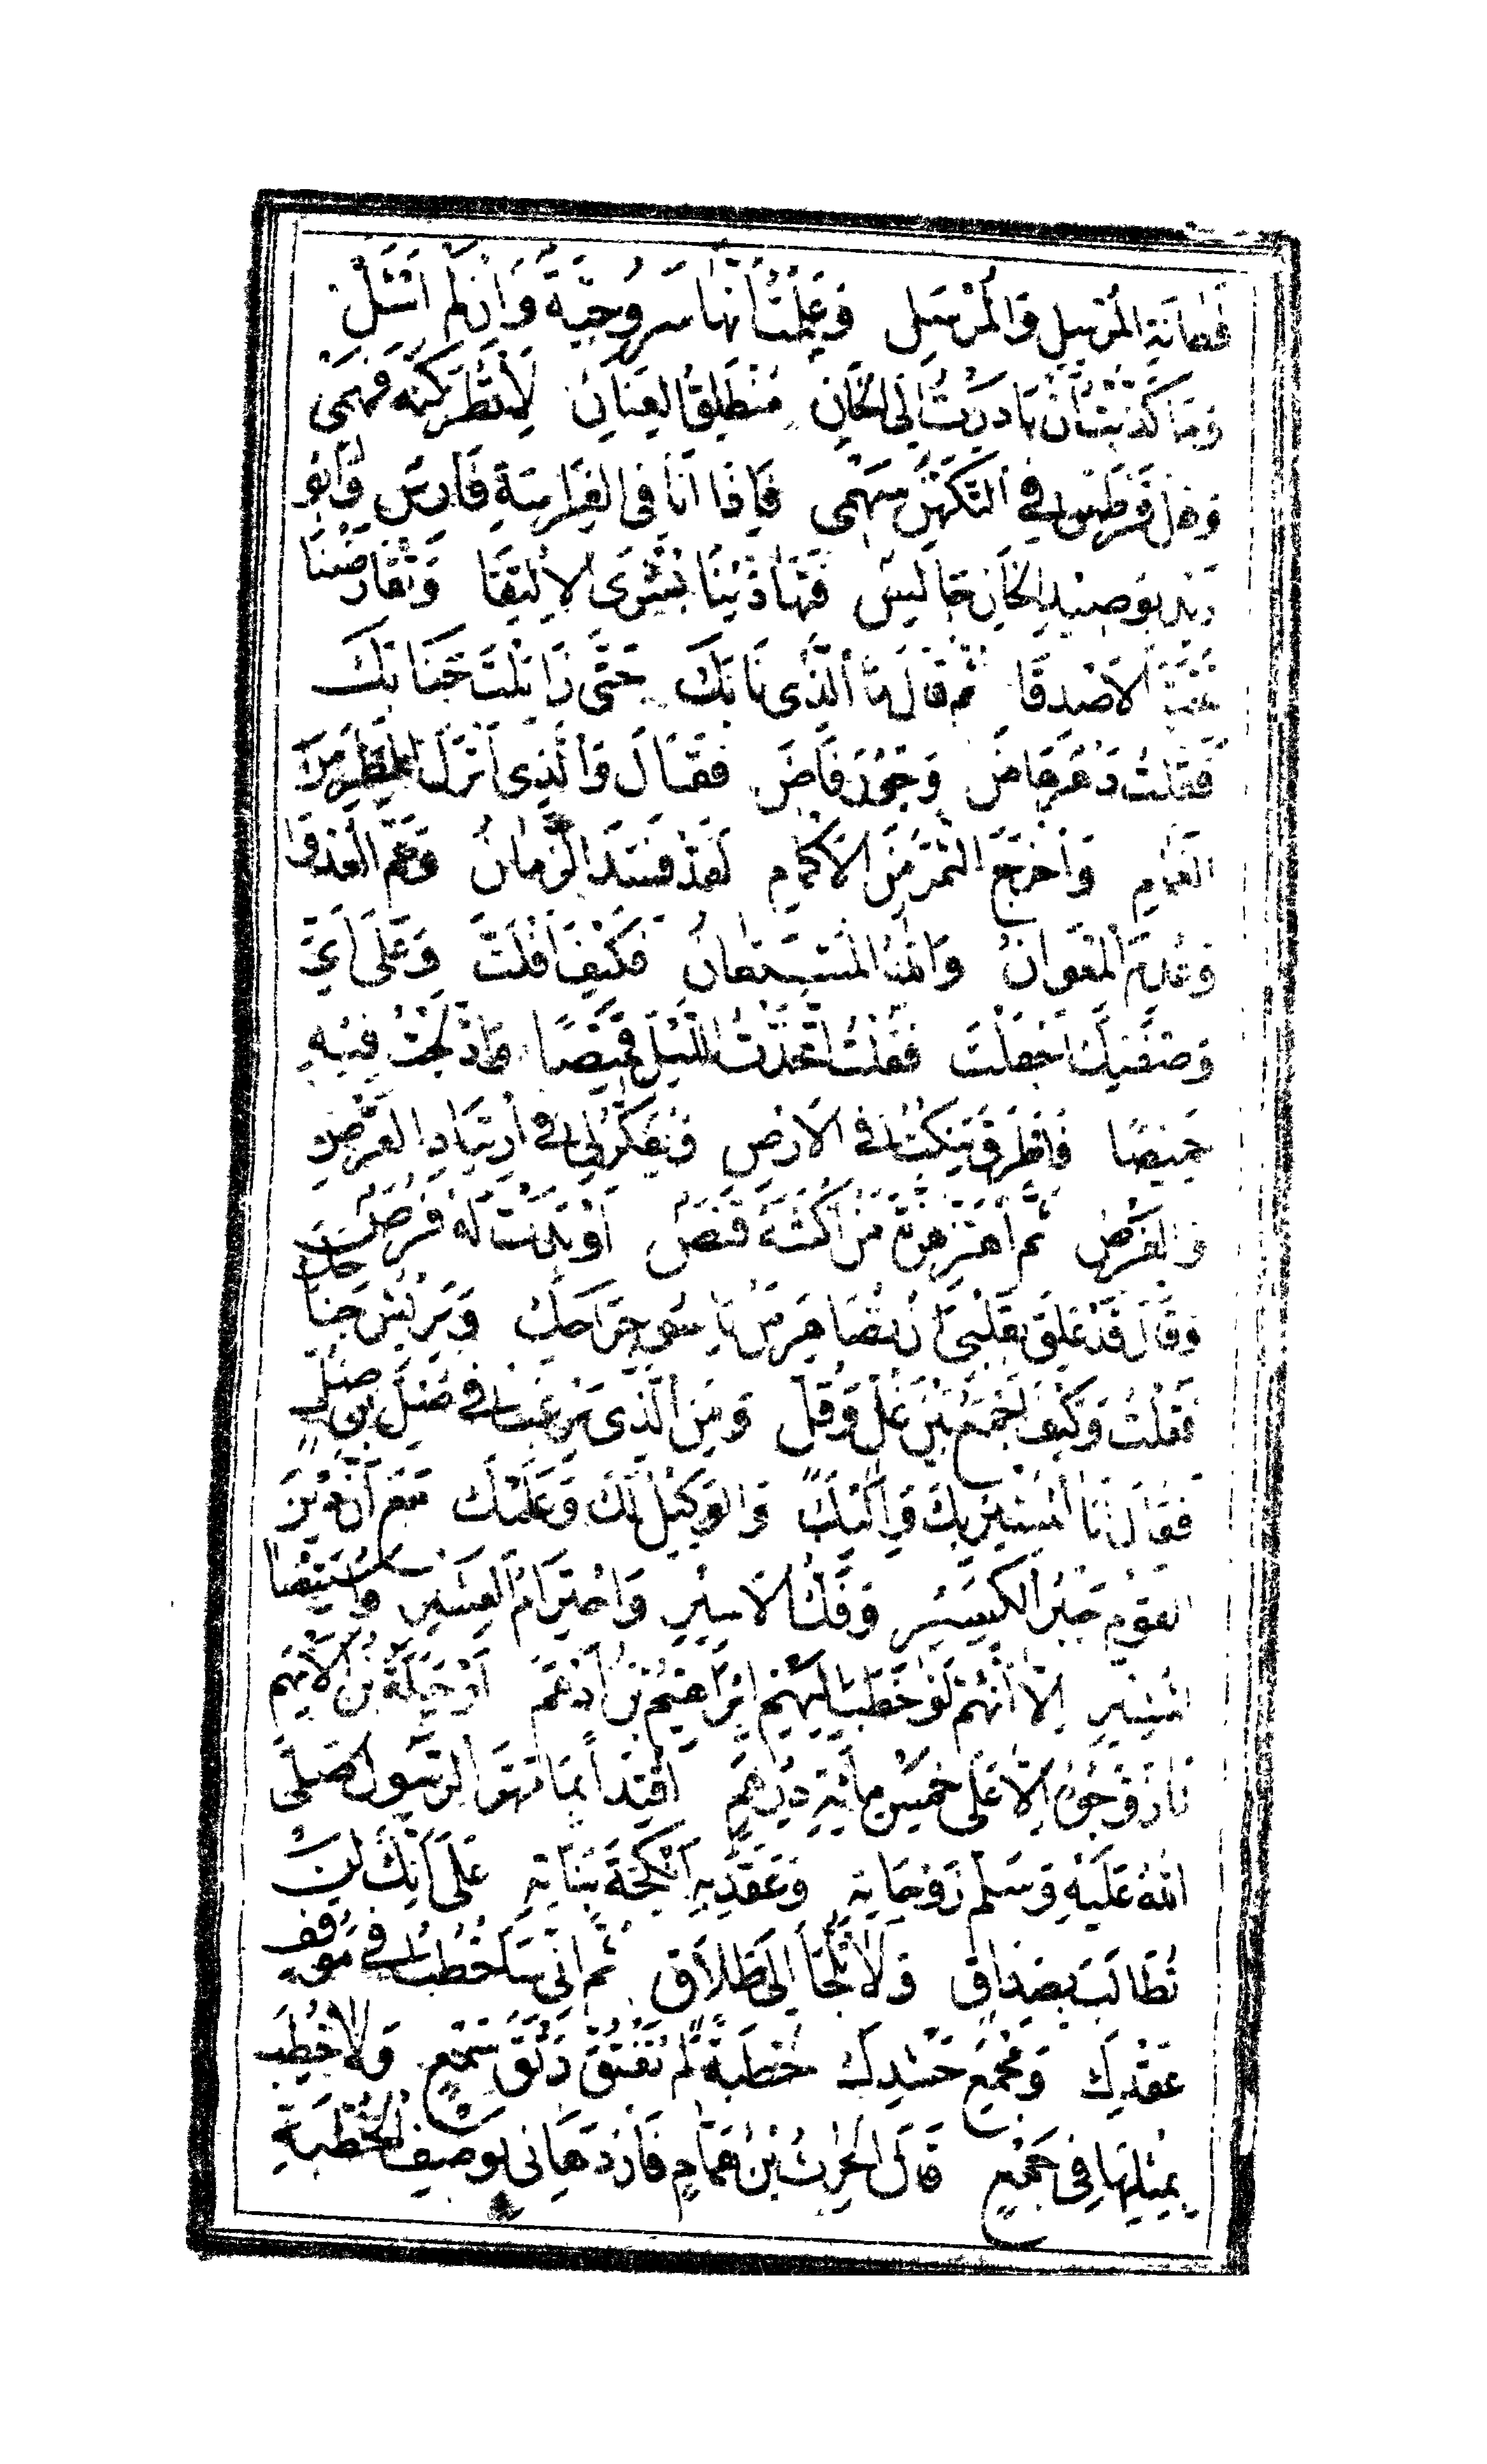 فطانة المُرْسِل وَالمُرْسَل وَعَلِمْتُ أَنَّهَا سَرُوجِيَّةٌ وَإِنْ لَمْ أَسْئَلْ
وَمَا كَذَّبْتُ أَنْ بَادَرْتُ إِلَى الخَانِ مُنْطَلِقَ العِنَانِ لِأَنْظُرَ كُنْهَ فَهْمِي
وَهَلْ قَرْطَسَ فِي التَّكَهُّنِ سَهْمِي فَإِذَا أَنَا فِي الفِرَاسَةِ فَارِسٌ وَأَبُو
زَيْدٍ بِوَصِيدِ الخَانِ جَالِسٌ فَتَهَادَيْنَا بُشْرَى الِالْتِقَا وَتَقَارَضْنَا
تَحِيَّةَ الأَصْدِقَا ثُمَّ قَالَ مَا الَّذِي نَابَكَ حَتَّى زَايَلْتَ جَنَابَكَ
فَقُلْتُ دَهْرٌ هَاضَ وَجَوْرٌ فَاضَ فَقَالَ وَالَّذِي أَنْزَلَ المَطَرَ مِنَ
الغَمَامِ وَأَخْرَجَ الثَّمَرَ مِنَ الأَكْمَامِ لَقَدْ فَسَدَ الزَّمَانُ وَعَمَّ العُدْوَا
وَعُدِمَ المِعْوَانُ وَاللهُ المُسْتَعَانُ فَكَيْفَ أَفْلَتَّ وَعَلَى أَيِّ
وَصْفَيْكَ أَجْفَلْتَ فَقُلْتُ اتَّخَذْتُ اللَّيْلَ قَمِيصًا وَأَدْلَجْتُ فِيهِ
خَمِيصًا فَأَطْرَقَ يَنْكُتُ فِي الأَرْضِ وَيُفَكِّرُ لِي فِي ارْتِيَادِ القَرْضِ
وَالفَرْضِ ثُمَّ اهْتَزَّ هِزَّةَ مَنْ أَكْثَبَهُ قَنَصٌ أَوْ بَدَتْ لَهُ فُرَصٌ
وَقَالَ قَدْ عَلِقَ بِقَلْبِي أَنْ تُصَاهِرَ مَنْ يَأْسُو جِرَاحَكَ وَيَرِيشُ جَنَاحَكَ
فَقُلْتُ وَكَيْفَ أَجْمَعُ بَيْنَ غُلٍّ وَقُلٍّ وَمَنِ الَّذِي يَرْغَبُ فِي ضُلِّ بْنِ ضُلٍّ
فَقَالَ أَنَا المُشِيرُ بِكَ وَإِلَيْكَ وَالوَكِيلُ لَكَ وَعَلَيْكَ مَعَ أَنَّ دِينَ
القَوْمِ جَبْرُ الكَسِيرِ وَفَكُّ الأَسِيرِ وَاحْتِرَامُ العَشِيرِ وَاسْتِنْصَا
المُشِيرِ إِلَّا أَنَّهُمْ لَوْ خَطَبَ إِلَيْهِمْ إِبْرَاهِيمُ بْنُ أَدْهَمَ أَوْ جَبَلَةُ بْنُ الأَيْهَمِ
مَا زَوَّجُوهُ إِلَّا عَلَى خَمْسِ مِائَةِ دِرْهَمٍ اقْتِدَاءً بِمَا مَهَرَ الرَّسُولُ صَلَّى
اللهُ عَلَيْهِ وَسَلَّمَ زَوْجَاتِهِ وَعَقَدَ بِهِ أَنْكِحَةَ بَنَاتِهِ عَلَى أَنَّكَ لَنْ
تُطَالَبَ بِصَدَاقٍ وَلَا تُلْجَأَ إِلَى طَلَاقٍ ثُمَّ إِنِّي سَأَخْطُبُ فِي مَوْقِفِ
عَقْدِكَ وَمَجْمَعِ حَشْدِكَ خُطْبَةً لَمْ تَفْتُقْ رَتْقَ سَمْعٍ وَلَا خُطِبَ
بِمِثْلِهَا فِي جَمْعٍ قَالَ الحَرِثُ بْنُ هَمَّامٍ فَازْدَهَانِي بِوَصْفِ الخُطْبَةِ